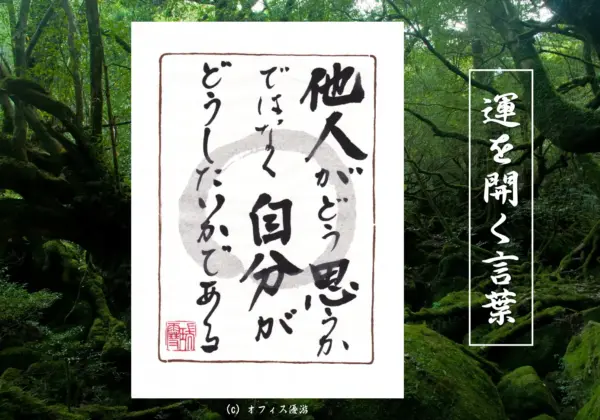 運を開く言葉
他人がどう思うか
ではなく自分が
どうしたいかである
(C) オフィス優游